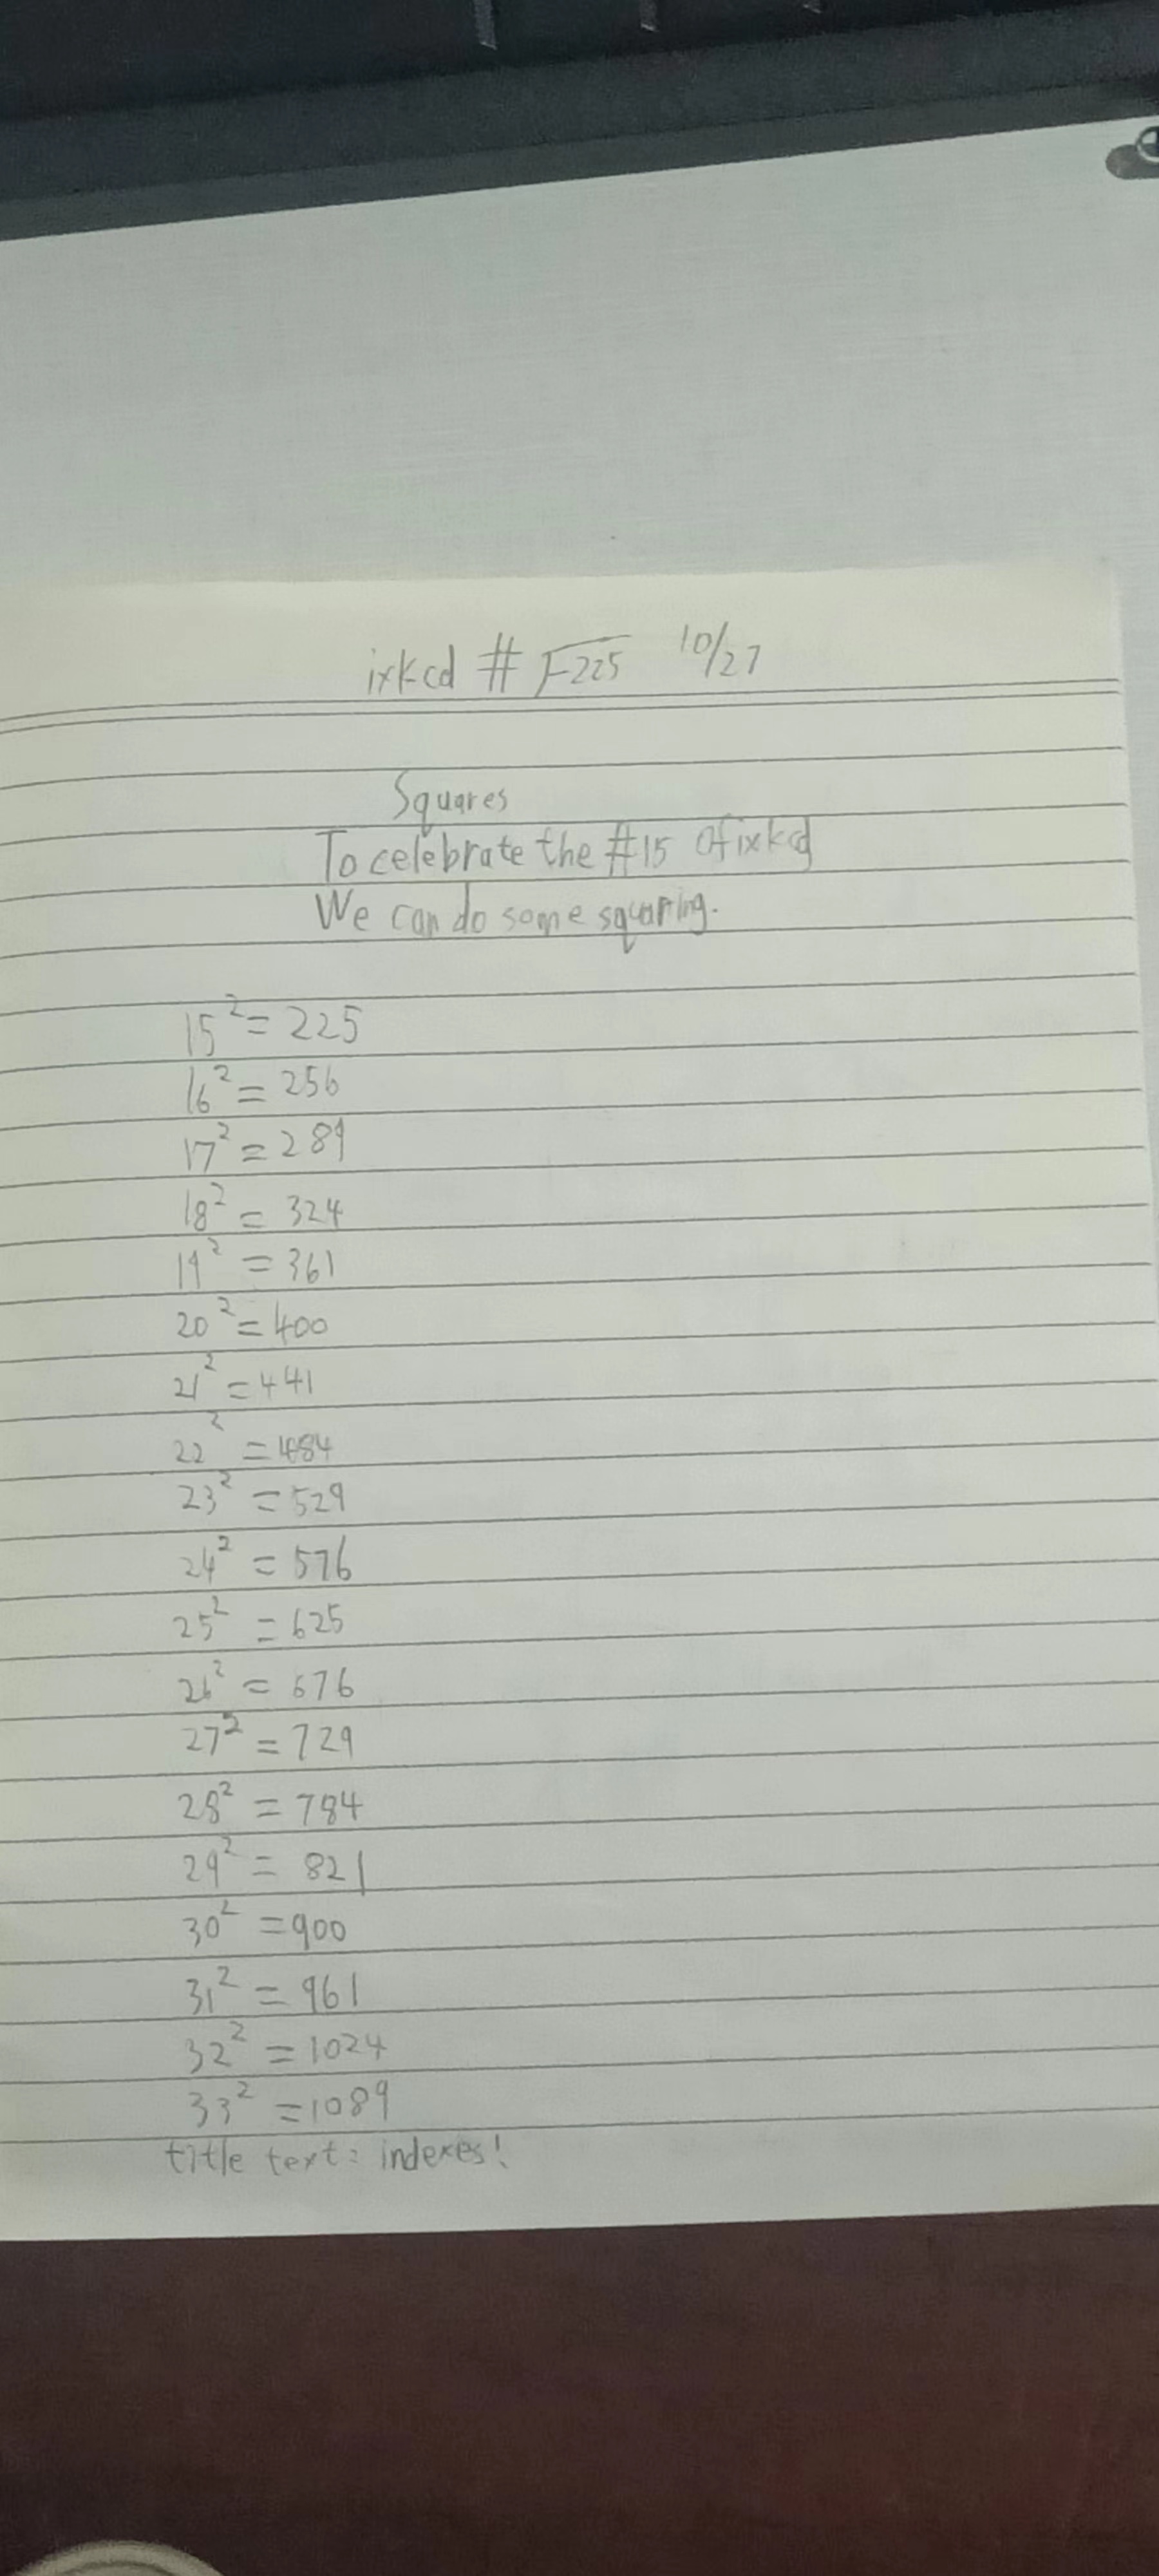 ixkcd # √225 10/27
Squares
To celebrate the #15 of ixkcd
We can do some squaring.
15² = 225
16² = 256
17² = 289
18² = 324
19² = 361
20² = 400
21² = 441
22² = 484
23² = 529
24² = 576
25² = 625
26² = 676
27² = 729
28² = 784
29² = 821
30² = 900
31² = 961
32² = 1024
33² = 1089
title text: indexes!